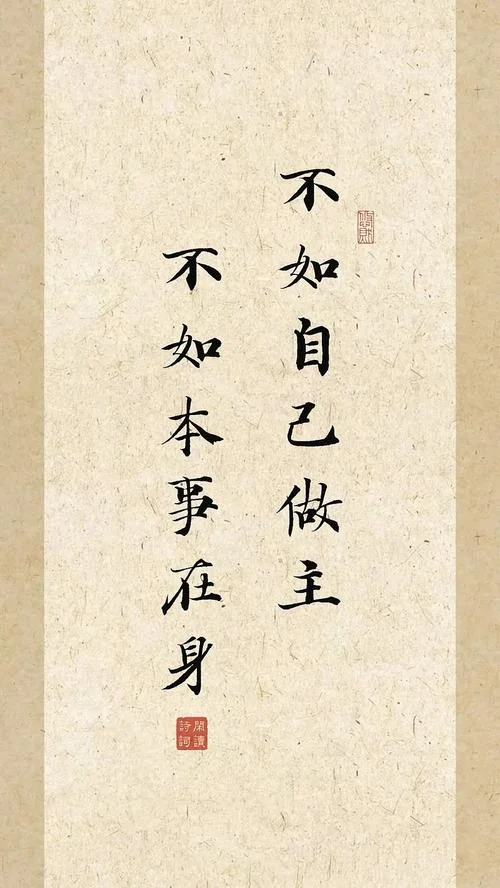 不如自己做主
不如本事在身
閑讀
詩詞